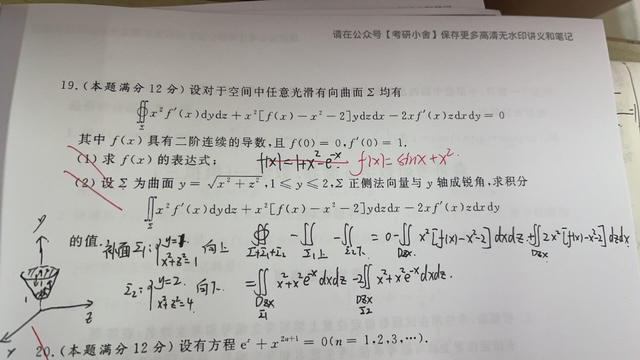 请在公众号【考研小舍】保存更多高清无水印讲义和笔记
19.(本题满分 12 分)设对于空间中任意光滑有向曲面 Σ 均有
∯_Σ x²f′(x)dydz+x²[f(x)-x²-2]ydzdx-2xf′(x)zdxdy=0
其中 f(x)具有二阶连续的导数,且 f(0)=0,f′(0)=1.
(1)求 f(x)的表达式; f(x)=1+x²-e^{-x} f(x)=sinx+x².
(2)设 Σ 为曲面 y=√(x²+z²),1≤y≤2,Σ 正侧法向量与 y 轴成锐角,求积分
∬_Σ x²f′(x)dydz+x²[f(x)-x²-2]ydzdx-2xf′(x)zdxdy
的值.
补面Σ₁:{y=1 x²+z²=1 向上 ∯_{Σ+Σ₁+Σ₂} - ∬_{Σ₁上} - ∬_{Σ₂下} =0-∬_{Dzx} x²[f(x)-x²-2]dxdz+∬_{Dzx} 2x²[f(x)-x²-2]dzdx
Σ₂:{y=2. x²+z²=4. 向下. =∬_{Dzx Σ₁} x²+x²e^{-x}dxdz-2∬_{Dzx Σ₂} x²+x²e^{-x}dxdz.
y
1
z
x
20.(本题满分 12 分)设有方程 eˣ+x^{2n+1}=0(n=1,2,3,⋯).